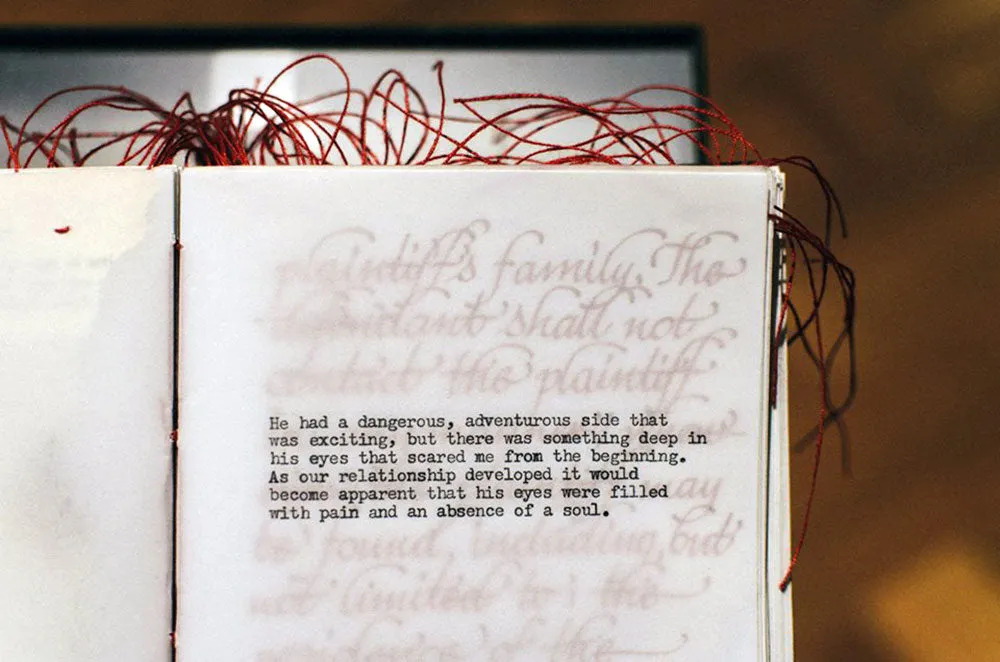 plaintiff's family. The
defendant shall not
contact the plaintiff
He had a dangerous, adventurous side that
was exciting, but there was something deep in
his eyes that scared me from the beginning.
As our relationship developed it would
become apparent that his eyes were filled
with pain and an absence of a soul.
may
be found, including, but
not limited to: the
residence of the